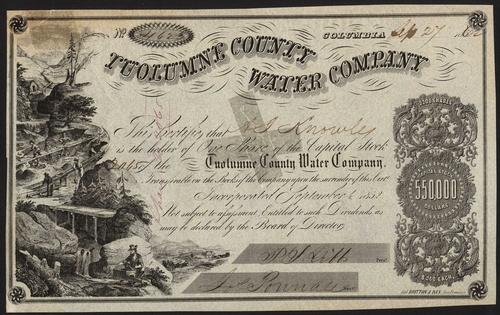 No 4625 COLUMBIA Sep 27 186
TUOLUMNE COUNTY
WATER COMPANY
This Certifies that Knowles
is the holder of One Share of the Capital Stock
of the Tuolumne County Water Company.
Transferable on the Books of the Company upon the surrender of this Cert.
Incorporated September 4 1851
Not subject to assessment. Entitled to such Dividends as
may be declared by the Board of Directors.
CAPITAL STOCK
$550,000
DOLLARS
Lith. BRITTON & REY. San Francisco